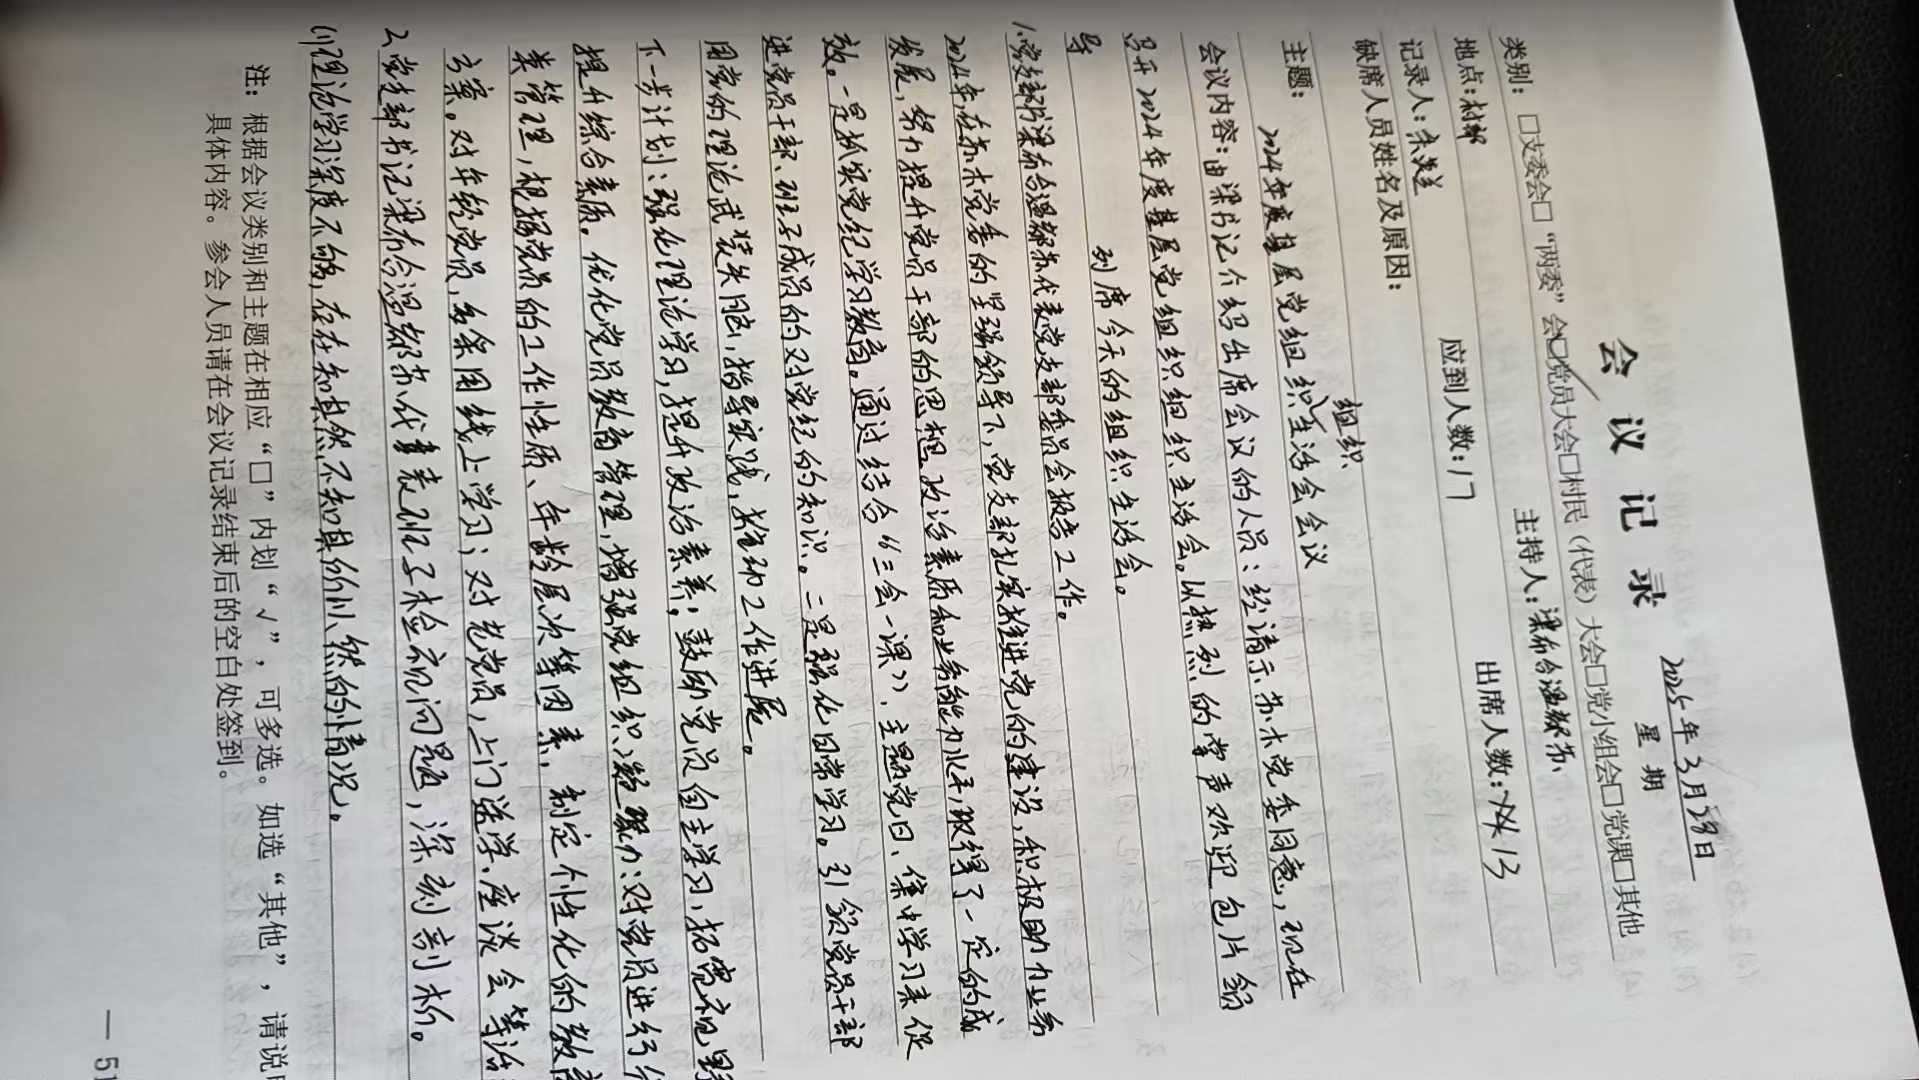 会议记录
2025年3月28日
星期
类别：□支委会□“两委”会□党员大会□村民（代表）大会□党小组会□党课□其他
地点：村部 主持人：梁布合温都苏
记录人： 应到人数：17 出席人数：13
缺席人员姓名及原因：
组织
主题： 2024年度基层党组织生活会会议
会议内容：由梁书记介绍出席会议的人员：经请示苏木党委同意，现在
召开2024年度基层党组织组织生活会。以热烈的掌声欢迎包片领
导 列席今天的组织生活会。
1.党支部书梁布合温都苏代表党支部委员会报告工作。
2024年在苏木党委的坚强领导下，党支部扎实推进党的建设，积极助力业务
发展，努力提升党员干部的思想政治素质和业务能力水平，取得了一定的成
效。一是抓实党纪学习教育。通过结合“三会一课”、主题党日、集中学习来促
进党员干部、班子成员的对党纪的知识。二是强化日常学习。引领党员干部
用党的理论武装头脑，指导实践，推动工作进展。
下一步计划：强化理论学习，提升政治素养；鼓励党员自主学习，拓宽视野
提升综合素质。优化党员教育管理，增强党组织凝聚力：对党员进行分
类管理，根据党员的工作性质、年龄层次等因素，制定个性化的教育
方案。对年轻党员，多采用线上学习；对老党员，上门送学、座谈会等活
2.党支部书记梁布合温都苏代表班子检视问题，深刻剖析。
(1)理论学习深度不够，存在知其然不知其所以然的情况。
注：根据会议类别和主题在相应“□”内划“√”，可多选。如选“其他”，请说明
具体内容。参会人员请在会议记录结束后的空白处签到。
— 51